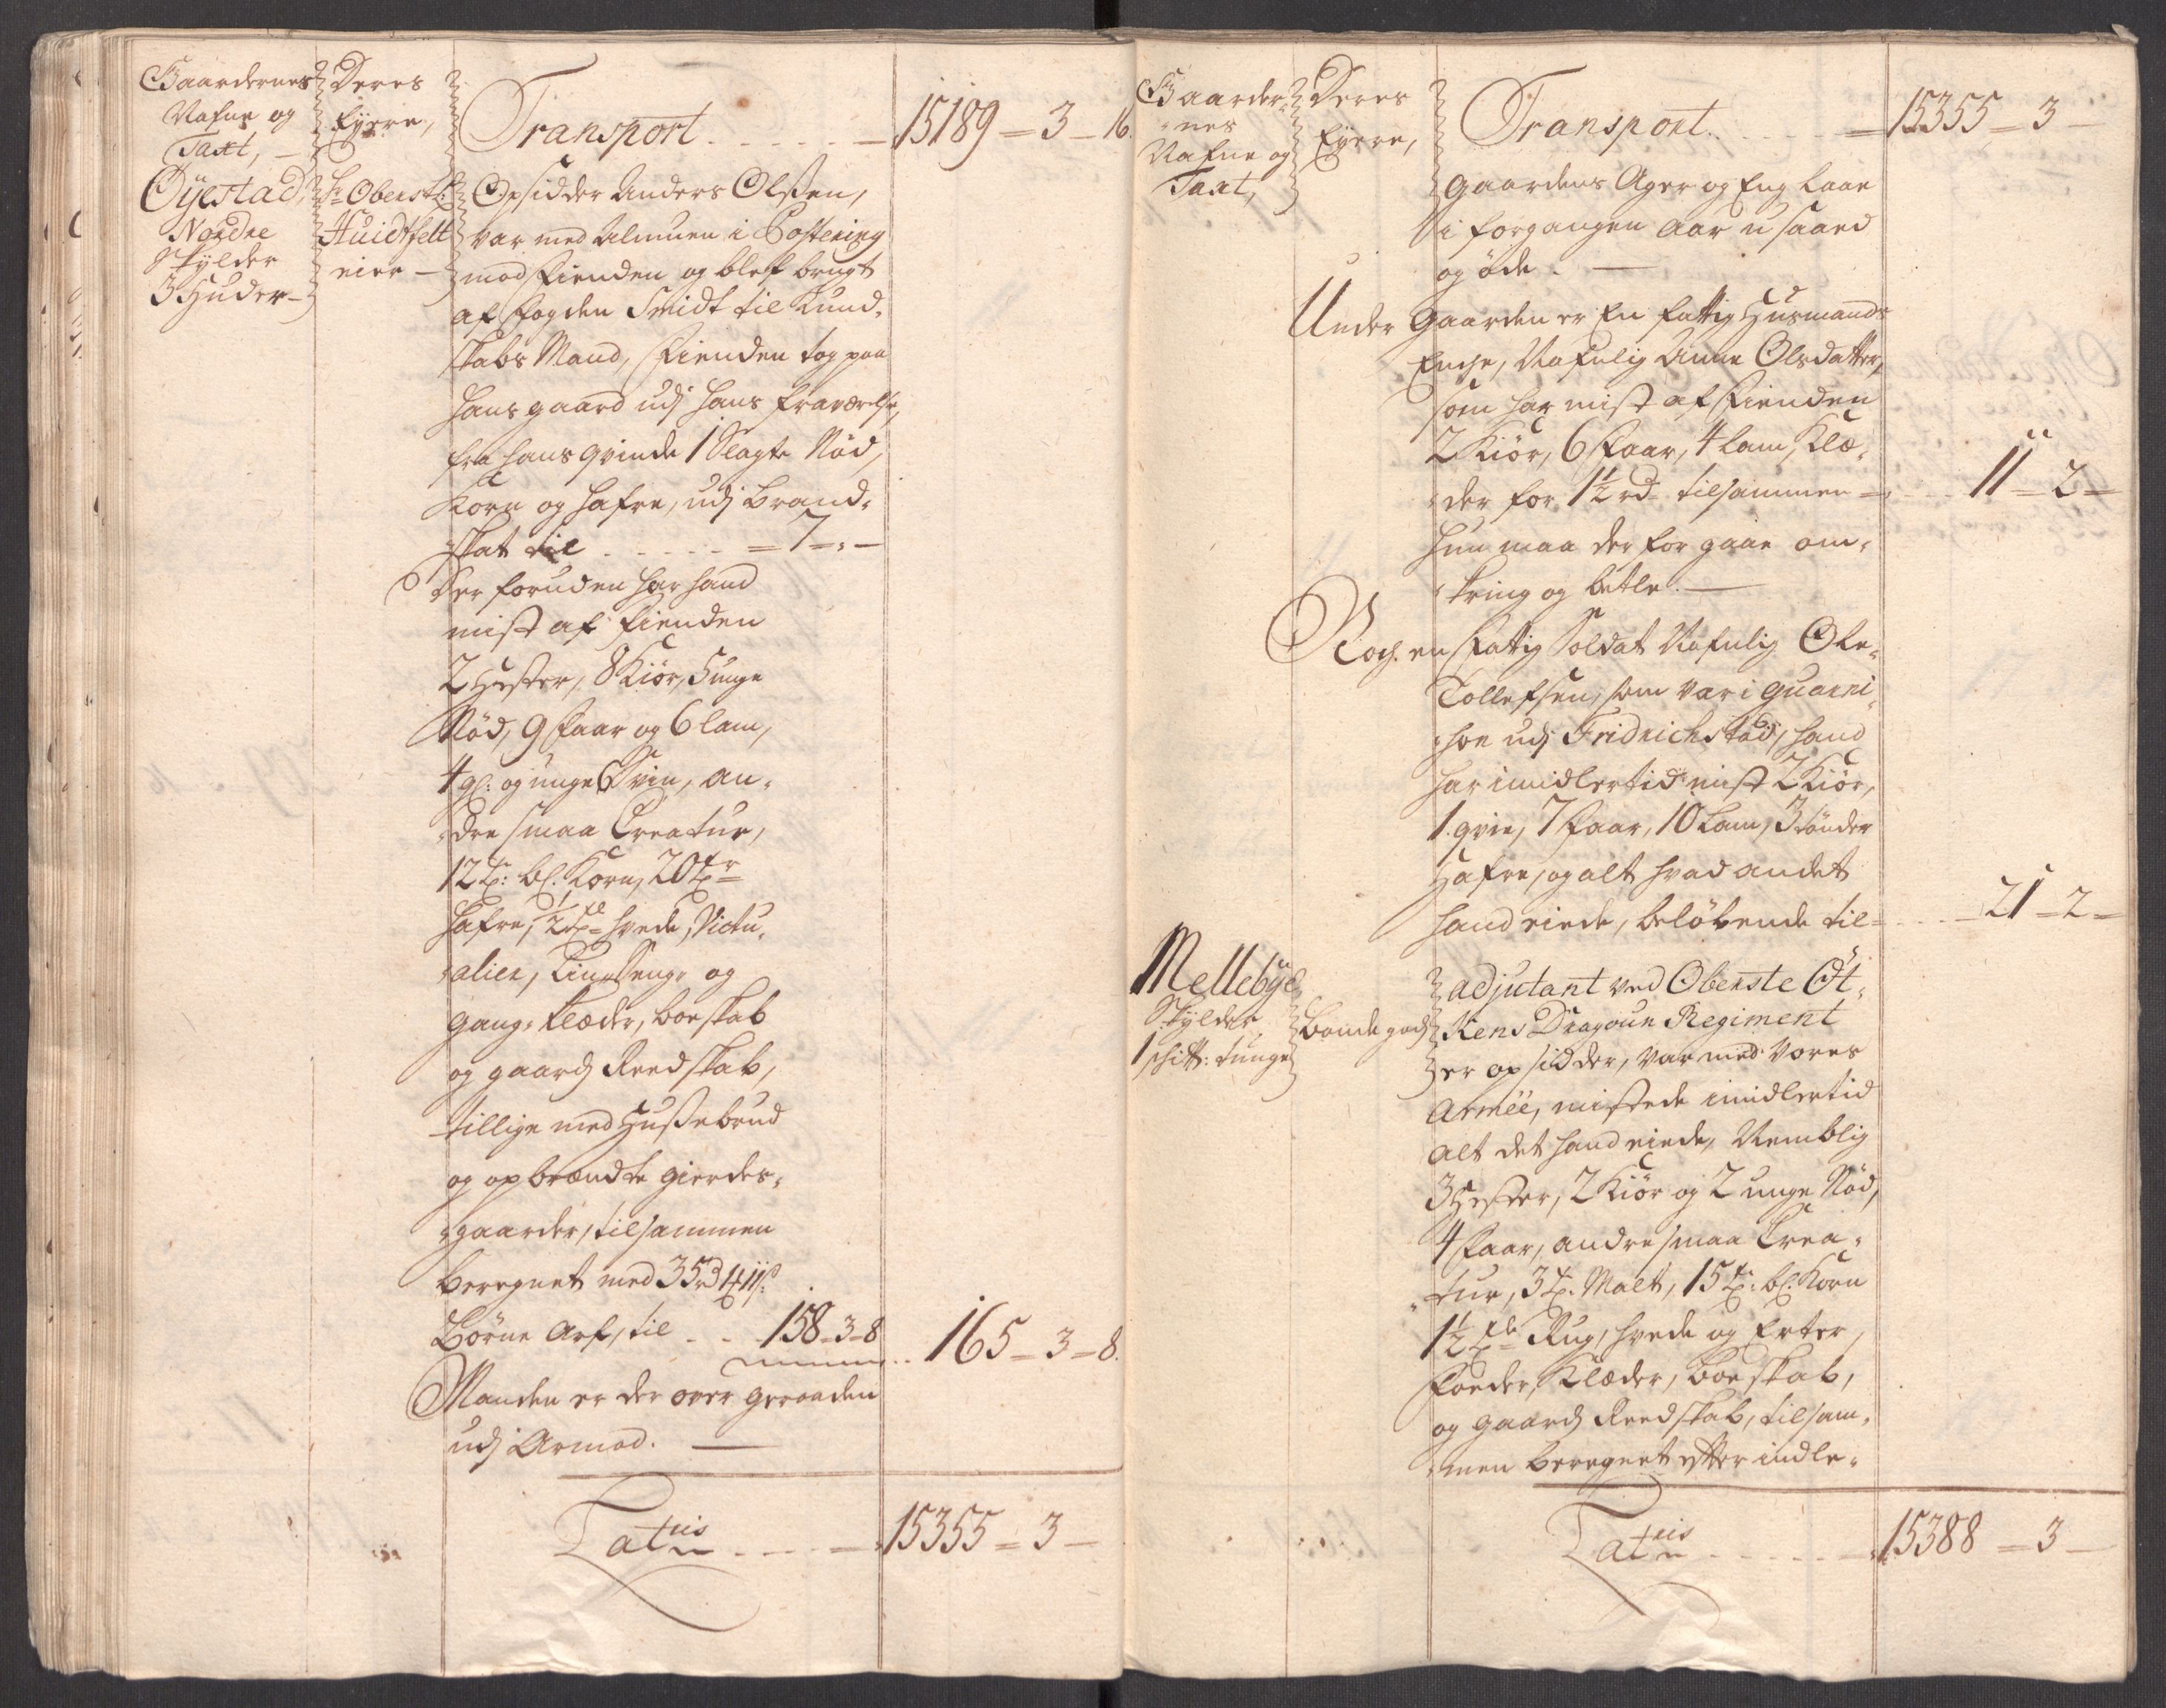 Gaardernes
Nafne og
Taxt,
Deres
Eÿere,
Transport - - - - - 15189 = 3 - 16.
Öÿestad,
Nordre
Skÿlder
3 Huder -
Hr Oberstl:
Huidtfelt
eier -
Opsidder Anders Olssen,
var med Almuen i Postering
mod Fienden og blef brugt
af Fogden Smidt til Kund-
skabs Mand, Fienden tog paa
hans gaard udj hans fraværelse,
fra hans qvinde 1 Slagte Nød,
Korn og hafre, udj Brand-
skat til - - - - = 7 = " -
Der foruden har hand
mist af Fienden
2 Hester, 8 Kiör, 5 unge
Nød, 9 Faar og 6 lam,
4 gl: og unge Sviin, an-
dre smaa Creatur,
12 t: bl: Korn, 20 tr
hafre, 1/2 tde hvede, Victu-
alier, Liin, Seng- og
gang- klæder, boeskab
og gaards Reedskab,
tillige med Hussebrud
og opbrændte gierdes-
gaarder, tilsammen
beregnet med 35 rd 4 11 s:
Börne Arf, til - - 158 - 3 - 8
165 - 3 - 8.
Manden er der over geraaden
udj Armod. -
Latus - - - = 15355 = 3 -
Gaarder-
nes
Nafne og
Taxt,
Deres
Eÿere,
Transport. - - - = 15355 = 3 -
gaardens Ager og Eng laae
i forgangen Aar u-saaed
og öde. -
Under Gaarden er En fattig Husmands
Enche, Nafnlig Anne Olsdatter,
som har mist af Fienden
2 Kiör, 6 Faar, 4 lam, Klæ-
der for 1 1/2 rd tilsammen = - - 11 = 2 =
hun maa der for gaae om-
kring og betle. -
Noch en Fattig Soldat Nafnlig Ole
Tollefsen, som var i guarni-
son udj Fridrichstad, hand
har imidlertid mist 2 Kiör,
1 qvie, 7 Faar, 10 Lam, 3 tönder
Hafre, og alt hvad andet
hand eiede, belöbende til = - - 21 = 2 =
Mellebÿe
Skÿlder
1 schitt: tunge
Bondegods
Adjutant ved Oberste Öt-
kens Dragoun Regiment
er opsidder, var med Vores
Armée, mistede imidlertid
Alt det hand eiede, Nemblig
3 Hester, 2 Kiör og 2 unge Nød,
4 Faar, andre smaa Crea-
tur, 3 t: Malt, 15 t: bl: Korn
1 1/2 tde Rug, hvede og Erter,
Foeder, Klæder, boe skab,
og gaards Reedskab, tilsam-
men beregnet efter indle-
Latus - - - - = 15388 = 3 -